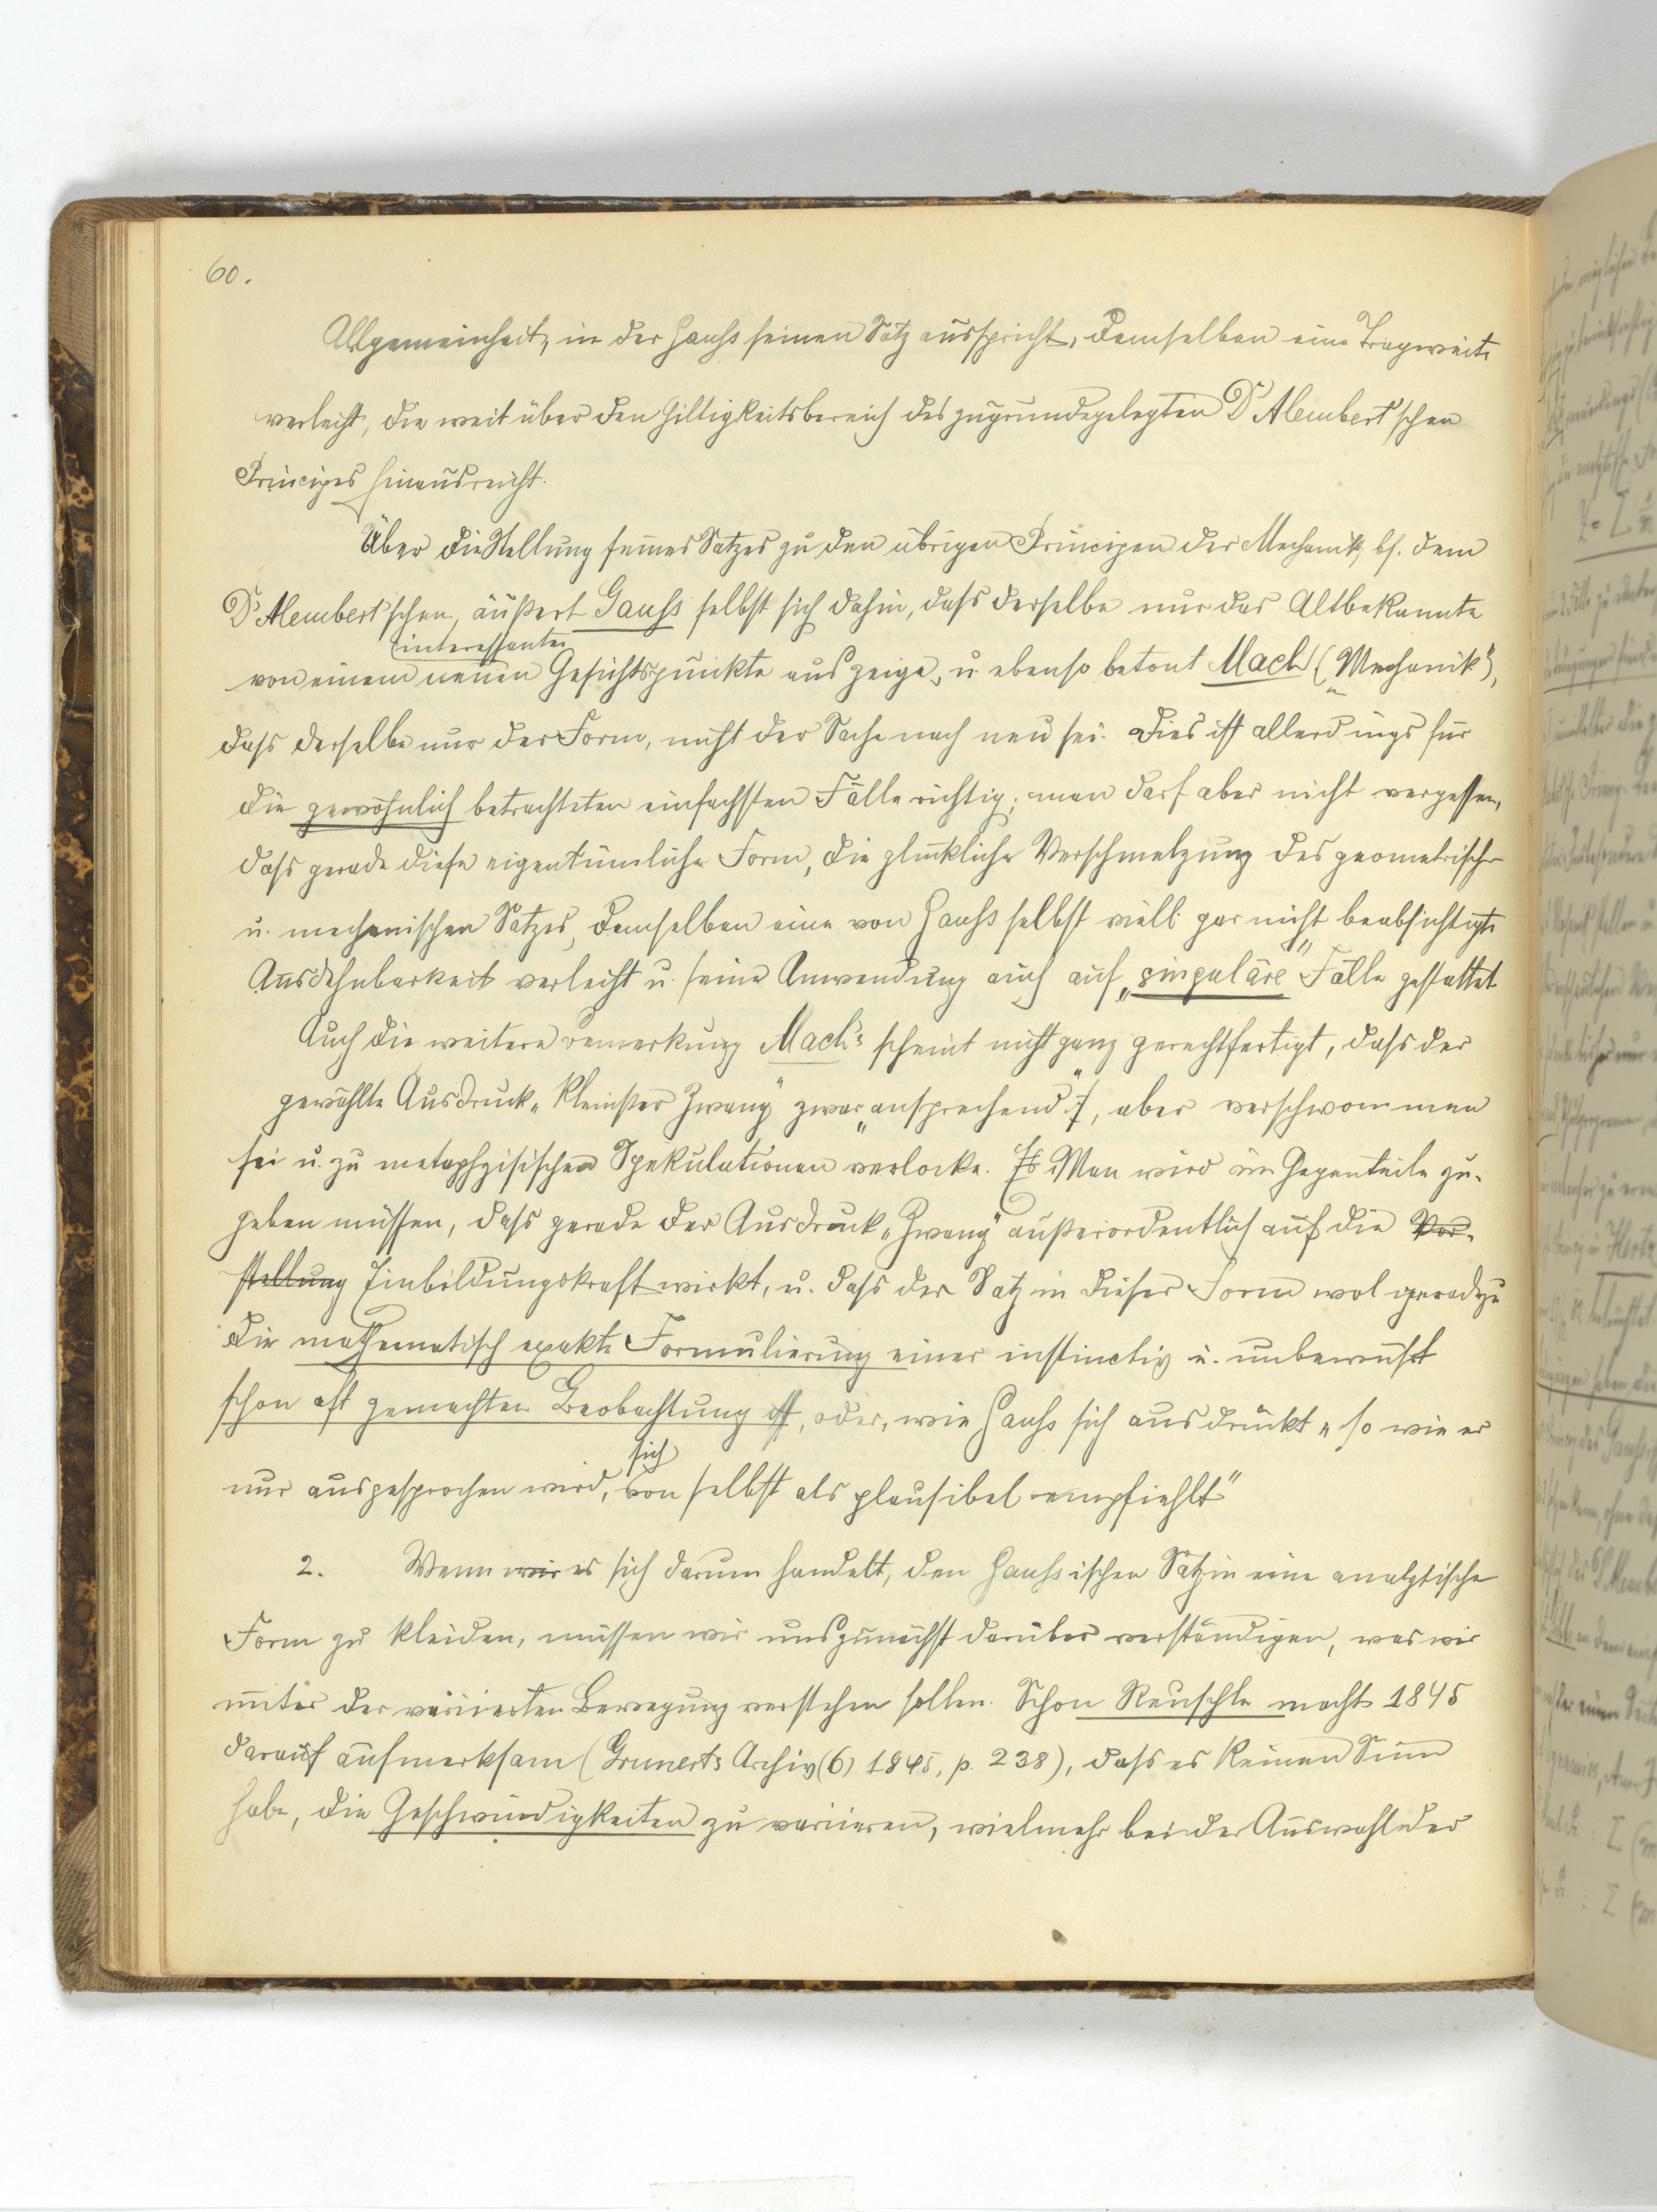 60.
Allgemeinheit, in der Gauß seinen Satz ausspricht, demselben eine Tragweite
verleiht, die weit über den Giltigkeitsbereich des zugrundegelegten D'Alembert'schen
Principes hinausreicht.
Über die Stellung seines Satzes zu den übrigen Principen der Mechanik, bs. dem
D'Alembert'schen, äußert Gauß selbst sich dahin, dass derselbe nur das Altbekannte
interessanten
von einem neuen Gesichtspunkte aus zeige, u. ebenso betont Mach („Mechanik“),
dass derselbe nur der Form, nicht der Sache nach neu sei. Dies ist allerdings für
die gewöhnlich betrachteten einfachsten Fälle richtig; man darf aber nicht vergessen,
dass gerade diese eigentümliche Form, die glückliche Verschmelzung des geometrischen
u. mechanischen Satzes, demselben eine von Gauß selbst viell. gar nicht beabsichtigte
Ausdehnbarkeit verleiht u. seine Anwendung auch auf „singuläre“ Fälle gestattet
Auch die weitere Bemerkung Mach's scheint nicht ganz gerechtfertigt, dass der
gewählte Ausdruck „kleinster Zwang“ zwar „ansprechend“, aber verschwommen
sei u. zu metaphysischen Spekulationen verlocke. Es Man wird im Gegenteile zu-
geben müssen, dass gerade der Ausdruck „Zwang“ außerordentlich auf die Vor-
stellung Einbildungskraft wirkt, u. dass der Satz in dieser Form wol geradezu
die mathematisch exakte Formulierung einer instinctiv u. unbewusst
schon oft gemachten Beobachtung ist, oder, wie Gauß sich ausdrückt „so wie er
sich
nur ausgesprochen wird, von selbst als plausibel empfiehlt“
2. Wenn wir es sich darum handelt, den Gaußischen Satz in eine analytische
Form zu kleiden, müssen wir uns zunächst darüber verständigen, was wir
unter der variierten Bewegung verstehen sollen. Schon Reuschle macht 1845
darauf aufmerksam (Grunerts Archiv (6) 1845, p. 238), dass es keinen Sinn
habe, die Geschwindigkeiten zu variieren, vielmehr bei der Auswahl der